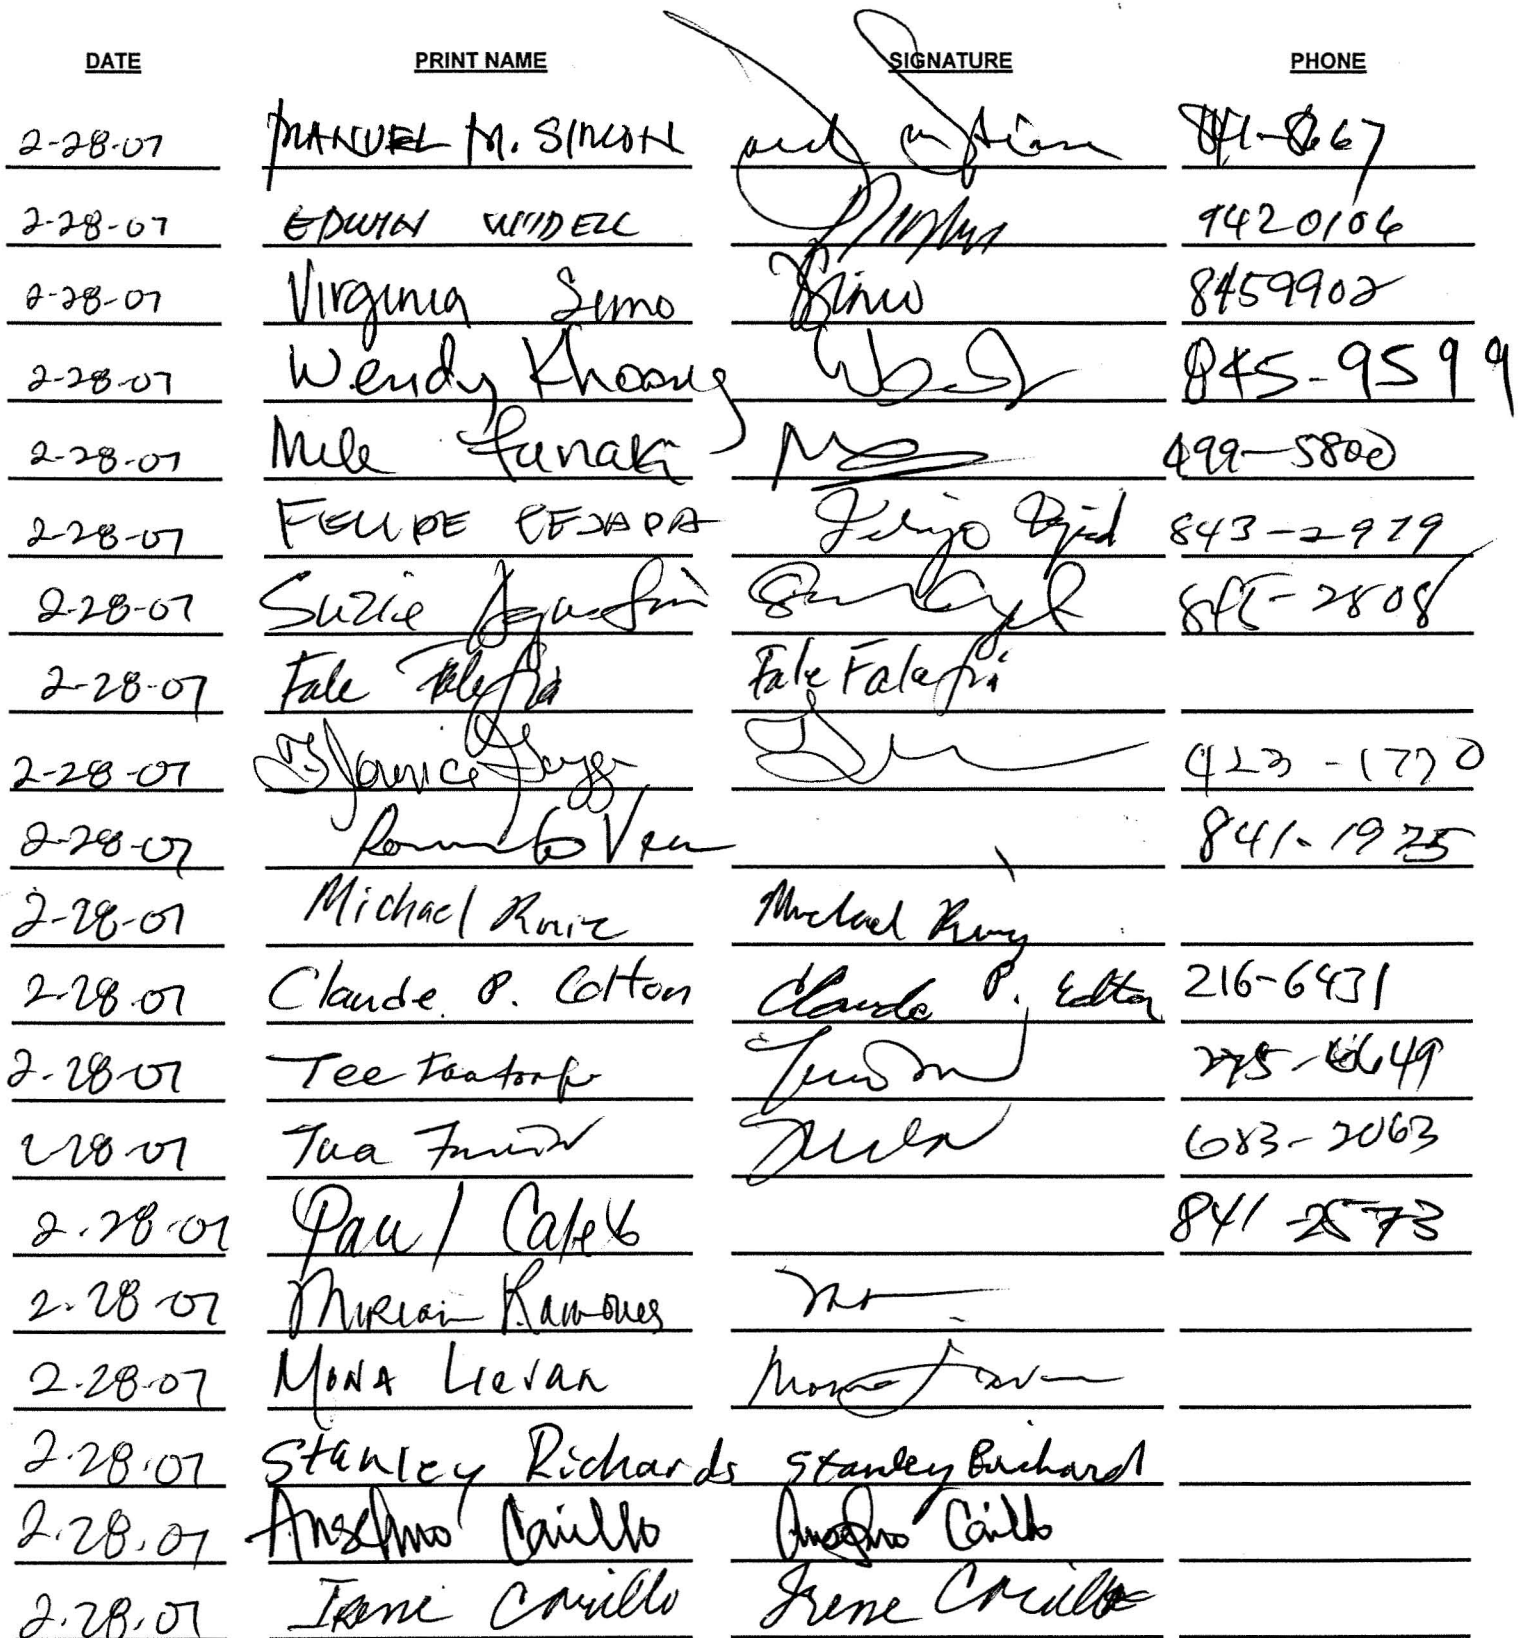 DATE PRINT NAME SIGNATURE PHONE
2-28-07 MANUEL M. SIMON
2-28-07 EDWIN WIDELL 9420106
2-28-07 Virginia Simo 8459902
2-28-07 Wendy Khoang 845-9599
2-28-07 Mele Funaki 499-5800
2-28-07 FELIPE 843-2979
2-28-07 Suzie Agustin 845-2808
2-28-07 Fale Falefia Fale Falefia
2-28-07 423-1770
2-28-07 841-1925
2-28-07 Michael Ruiz Michael Ruiz
2-28-07 Claude P. Colton Claude P. Colton 216-6431
2-28-07 Tee
2-28-07 Tua 683-2063
2-28-07 Paul Caleb 841-2573
2-28-07 Miriam Ramones
2-28-07 MONA Lievan Mona
2-28-07 Stanley Richards Stanley Richard
2-28-07 Anselmo Carillo Anselmo Carillo
2-28-07 Irene Carillo Irene Carillo